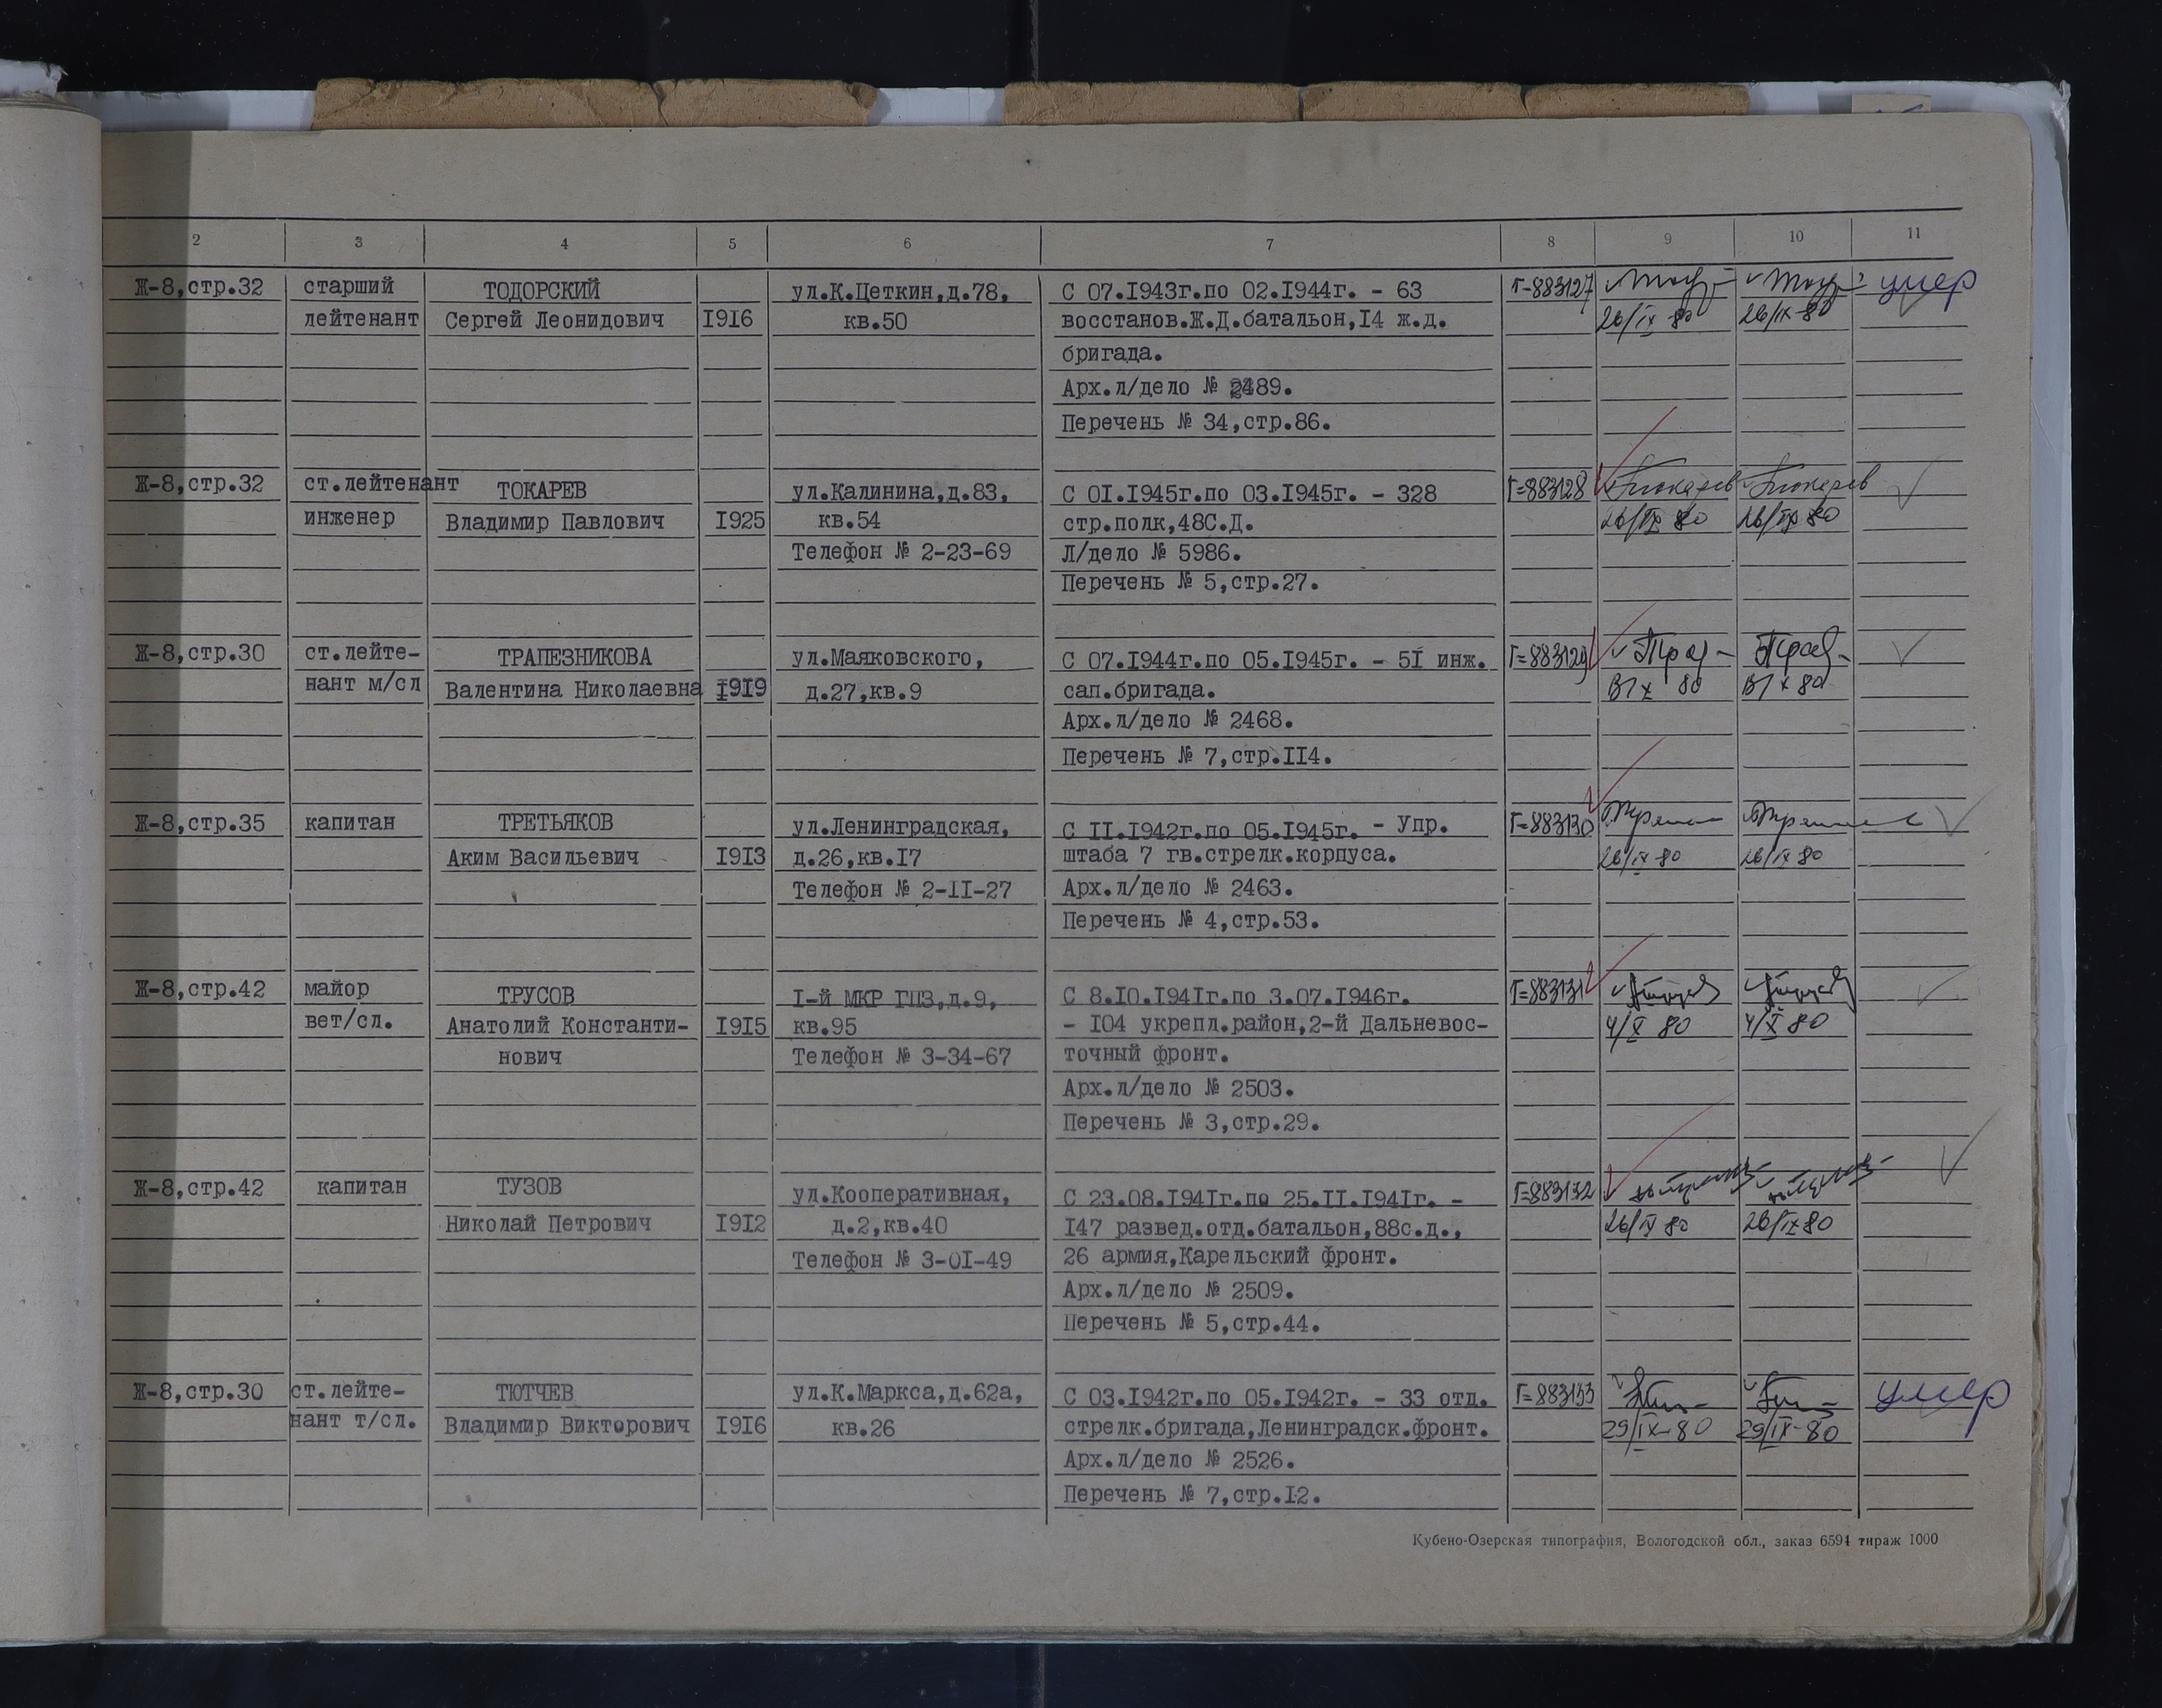 2 3 4 5 6 7 8 9 10 11
Ж-8,стр.32 старший ТОДОРСКИЙ ул.К.Цеткин,д.78, С 07.1943г.по 02.1944г. - 63 Г-883127 умер
лейтенант Сергей Леонидович 1916 кв.50 восстанов.Ж.Д.батальон,14 ж.д. 26/IX 80 26/IX-80
бригада.
Арх.л/дело № 2489.
Перечень № 34,стр.86.
Ж-8,стр.32 ст.лейтенант ТОКАРЕВ ул.Калинина,д.83, С 01.1945г.по 03.1945г. - 328 Г=883128 Токарев Токарев
инженер Владимир Павлович 1925 кв.54 стр.полк,48С.Д. 26/IX 80 26/IX 80
Телефон № 2-23-69 Л/дело № 5986.
Перечень № 5,стр.27.
Ж-8,стр.30 ст.лейте- ТРАПЕЗНИКОВА ул.Маяковского, С 07.1944г.по 05.1945г. - 51 инж. Г=883129
нант м/сл Валентина Николаевна 1919 д.27,кв.9 сап.бригада.
Арх.л/дело № 2468.
Перечень № 7,стр.114.
Ж-8,стр.35 капитан ТРЕТЬЯКОВ ул.Ленинградская, С 11.1942г.по 05.1945г. - Упр. Г=883130
Аким Васильевич 1913 д.26,кв.17 штаба 7 гв.стрелк.корпуса. 26/IX 80 26/IX 80
Телефон № 2-11-27 Арх.л/дело № 2463.
Перечень № 4,стр.53.
Ж-8,стр.42 майор ТРУСОВ 1-й МКР ГПЗ,д.9, С 8.10.1941г.по 3.07.1946г. Г=883131
вет/сл. Анатолий Константи- 1915 кв.95 - 104 укрепл.район,2-й Дальневос- 4/X 80 4/X 80
нович Телефон № 3-34-67 точный фронт.
Арх.л/дело № 2503.
Перечень № 3,стр.29.
Ж-8,стр.42 капитан ТУЗОВ ул.Кооперативная, С 23.08.1941г.по 25.11.1941г. - Г=883132
Николай Петрович 1912 д.2,кв.40 147 развед.отд.батальон,88с.д., 26/IX 80 26/IX 80
Телефон № 3-01-49 26 армия,Карельский фронт.
Арх.л/дело № 2509.
Перечень № 5,стр.44.
Ж-8,стр.30 ст.лейте- ТЮТЧЕВ ул.К.Маркса,д.62а, С 03.1942г.по 05.1942г. - 33 отд. Г=883133 умер
нант т/сл. Владимир Викторович 1916 кв.26 стрелк.бригада,Ленинградск.фронт. 29/IX-80 29/IX-80
Арх.л/дело № 2526.
Перечень № 7,стр.12.
Кубено-Озерская типография, Вологодской обл., заказ 6594 тираж 1000